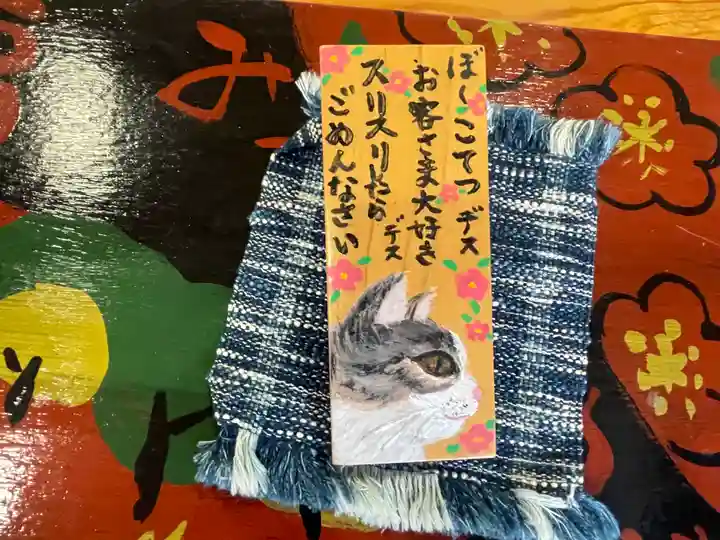 ぼくこてつデス
お客さま大好きデス
スリスリしたら
ごめんなさい
み